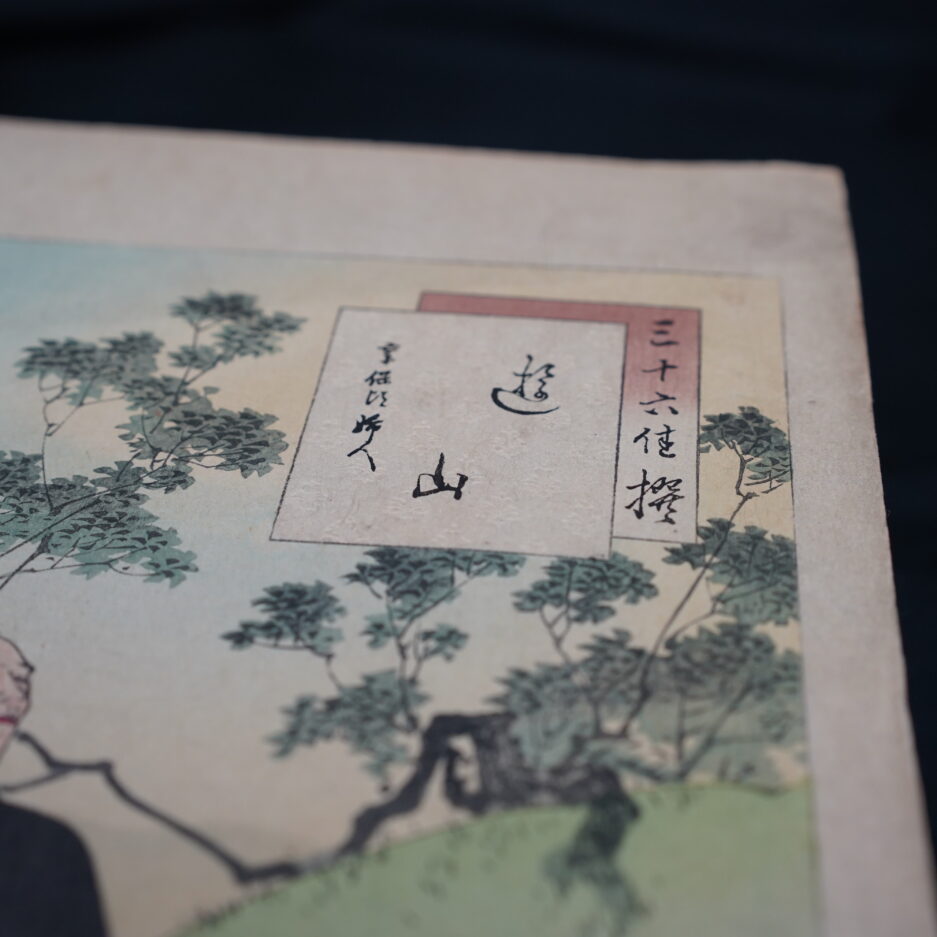 三十六佳撰
遊山
享保頃婦人